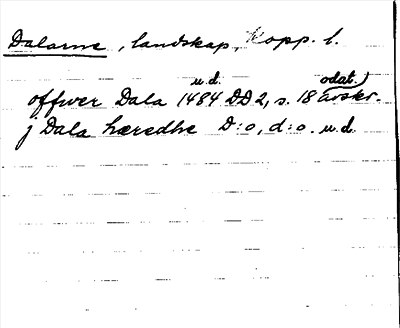 Dalarne, landskap, Kopp. l.
u.d. odat.)
offwer Dala 1484 DD 2, s. 18 avskr.
j Dala hæredhe D:o, d:o. u.d.